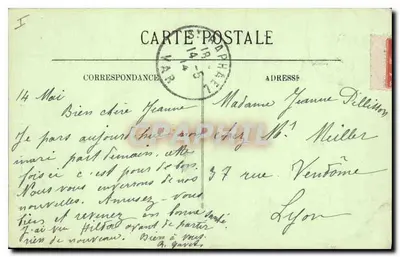 I
CARTE POSTALE
ST RAPHAEL
18 - 5
14
VAR
CORRESPONDANCE
ADRESSE
14 Mai
Bien chère Jeanne
Je pars aujourd'hui mon
mari part demain, cette
fois ci c'est pour de bon.
Nous vous enverrons de nos
nouvelles. Amusez-vous
bien et revenez en bonne santé
J'ai vu avant de partir
rien de nouveau. Bien à vous
Madame Jeanne
chez Mr Miller
37 rue Vendôme
Lyon